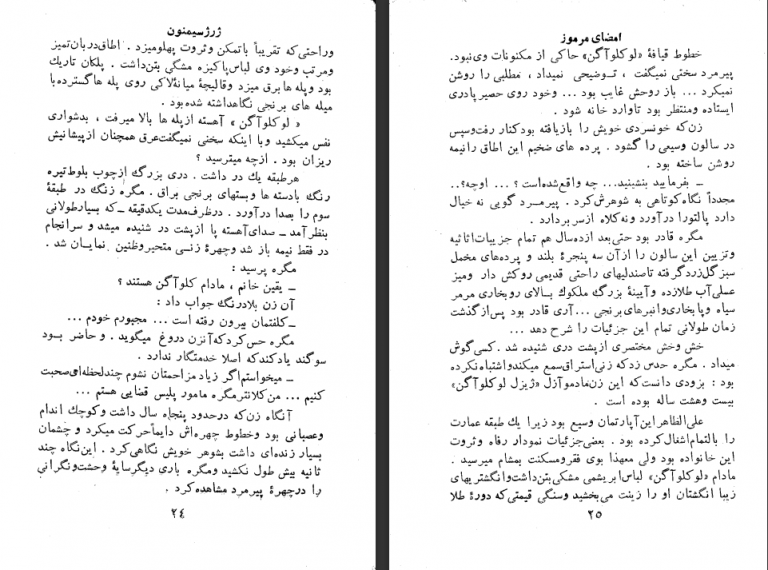 ژرژسیمنون
وراحتی‌که تقریباً باتمکن وثروت پهلومیزد . اطاق دربان تمیز
ومرتب وخود وی لباس پاکیزه مشکی بتن‌داشت . پلکان تاریك
بود وپله‌ها برق میزد وقالیچهٔ میانهٔ لاکی روی پله هاگسترده با
میله های برنجی نگاهداشته شده بود .
« لوکلوآگن » آهسته ازپله‌ها بالا میرفت ، بدشواری
نفس میکشید وبا اینکه سخنی نمیگفت عرق همچنان ازپیشانیش
ریزان بود . ازچه میترسید ؟
هرطبقه یك در داشت . دری بزرگ ازچوب بلوط تیره
رنگ بادسته ها وبستهای برنجی براق . مگره زنگ در طبقهٔ
سوم را بصدا درآورد . درظرف مدت یکدقیقه ــ که بسیارطولانی
بنظرآمد ــ صدای آهسته پا ازپشت در شنیده میشد و سرانجام
در فقط نیمه باز شد وچهرهٔ زنی متحیر وظنین نمایان شد .
مگره پرسید :
ــ یقین خانم ، مادام کلوآگن هستند ؟
آن زن بلادرنگ جواب داد :
ــ کلفتمان بیرون رفته است ... مجبورم خودم ...
مگره حس کرد که آنزن دروغ میگوید . و حاضر بود
سوگند یادکند که اصلا خدمتگار ندارد .
ــ میخواستم اگر زیاد مزاحمتان نشوم چند لحظه‌ای صحبت
کنیم ... من کلانتر مگره مامور پلیس قضایی هستم ...
آنگاه زن که درحدود پنجاه سال داشت وکوچك اندام
وعصبانی بود وخطوط چهره‌اش دایماًحرکت میکرد و چشمان
بسیار زنده‌ای داشت بشوهر خویش نگاهی کرد . این نگاه چند
ثانیه بیش طول نکشید ومگره باری دیگر سایهٔ وحشت ونگرانی
را درچهرهٔ پیرمرد مشاهده کرد .
۲۴
امضای مرموز
خطوط قیافهٔ «لوکلوآگن» حاکی از مکنونات وی نبود.
پیرمرد سخنی نمیگفت ، توضیحی نمیداد ، مطلبی را روشن
نمیکرد ... باز روحش غایب بود ... وخود روی حصیر پادری
ایستاده ومنتظر بود تاوارد خانه شود .
زن که خونسردی خویش را بازیافته بود کنار رفت وسپس
در سالون وسیعی را گشود . پرده های ضخیم این اطاق رانیمه
روشن ساخته بود .
ــ بفرمایید بنشینید... چه واقع شده‌است ؟ ... اوچه؟..
مجدداً نگاه کوتاهی به شوهرش کرد . پیرمرد گویی نه خیال
دارد پالتورا درآورد ونه کلاه ازسر بردارد .
مگره قادر بود حتی بعد ازده سال هم تمام جزییات اثاثیه
وتزیین این سالون را ازآن سه پنجرهٔ بلند و پرده‌های مخمل
سبز گل‌زرد گرفته تاصندلیهای راحتی قدیمی روکش دار ومیز
عسلی آب طلازده وآیینهٔ بزرگ ملکوك بالای روبخاری مرمر
سیاه وپابخاری وانبرهای برنجی ...آری قادر بود پس ازگذشت
زمان طولانی تمام این جزئیات را شرح دهد ...
خش وخش مختصری ازپشت دری شنیده شد . کسی گوش
میداد . مگره حدس زد که زنی استراق سمع میکند واشتباه نکرده
بود : بزودی دانست که این زن مادموآزل «ژیزل لوکلوآگن»
بیست وهشت ساله بوده است .
علی‌الظاهر این آپارتمان وسیع بود زیرا یك طبقه عمارت
را بالتمام اشغال کرده بود . بعضی جزئیات نمودار رفاه وثروت
این خانواده بود ولی معهذا بوی فقر ومسکنت بمشام میرسید .
مادام «لوکلوآگن» لباس ابریشمی مشکی بتن داشت وانگشتریهای
زیبا انگشتان او را زینت می‌بخشید وسنگی قیمتی که دورهٔ طلا
۲۵